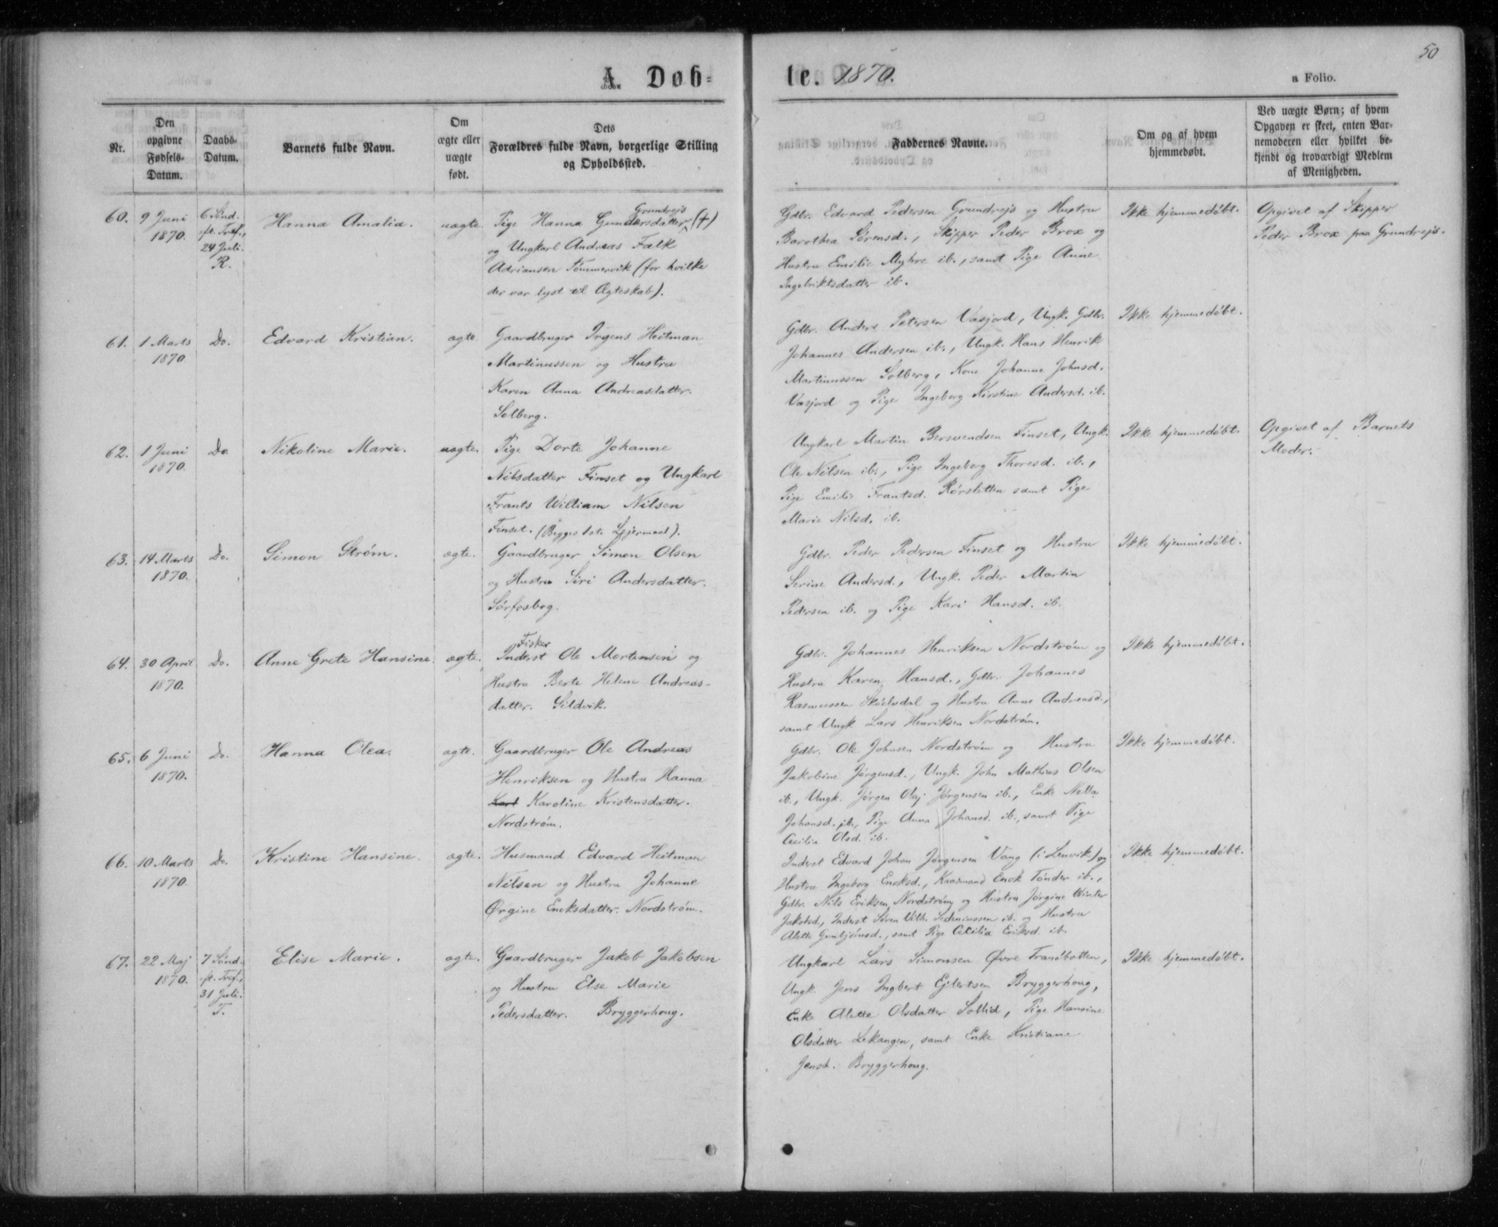 50
A. Døb-
te. 1870.
a Folio.
Nr.
Den opgivne Fødsels-Datum.
Daabs-Datum.
Barnets fulde Navn.
Om ægte eller uægte født.
Dets Forældres fulde Navn, borgerlige Stilling og Opholdssted.
Faddernes Navne.
Om og af hvem hjemmedøbt.
Ved uægte Børn; af hvem Opgaven er skeet, enten Barnemoderen eller hvilket bekjendt og troværdigt Medlem af Menigheden.
60. 9 Juni 1870.
6 Sønd. ft. Tref. 24 Juli. R.
Hanna Amalia.
uægte.
Pige Hanna Gundersdatter, Grundrejs (+)
og Ungkarl Andreas Falk
Adriansen Tømmervik (for hvilke
der var lyst til Ægteskab).
Gdbr. Edvard Pedersen Grundrejs og Hustru
Barothea Sørensd., Skipper Peder Brox og
Hustru Emilie Myhre ib., samt Pige Anne
Ingebriktsdatter ib.
Ikke hjemmedøbt.
Opgivet af Skipper
Peder Brox paa Grundrejs.
61. 1 Marts 1870
Do.
Edvard Kristian.
ægte
Gaardbruger Irgens Heitman
Martinussen og Hustru
Karen Anna Andreasdatter.
Solberg.
Gdbr. Anders Petersen Vasjord, Ungk. Gdbr.
Johannes Andersen ib., Ungk. Hans Henrik
Martinussen Solberg, Kone Johanne Johnsd.
Vasjord og Pige Ingeborg Kirstine Andersd. ib.
Ikke hjemmedøbt.
62. 1 Juni 1870.
Do
Nikoline Marie.
uægte.
Pige Dorte Johanne
Nilsdatter Finset og Ungkarl
Frants William Nilsen
Finset. (Begges 1ste Lejermaal).
Ungkarl Martin Berwendsen Finset, Ungk.
Ole Nilsen ib., Pige Ingeborg Thoresd. ib.,
Pige Emilie Frantsd. Rørsletten samt Pige
Marie Nilsd. ib.
Ikke hjemmedøbt.
Opgivet af Barnets
Moder.
63. 14 Marts 1870.
Do.
Simon Strøm.
ægte.
Gaardbruger Simon Olsen
og Hustru Siri Andersdatter.
Sørfosbog.
Gdbr. Peder Pedersen Finset og Hustru
Serine Andersd., Ungk. Peder Martin
Pedersen ib. og Pige Kari Hansd. ib.
Ikke hjemmedøbt.
64. 30 April 1870.
Do.
Anne Grete Hansine
ægte.
Fisker
Inderst Ole Mortensen og
Hustru Berte Helene Andreas-
datter. Gildvik.
Gdbr. Johannes Henriksen Nordstrøm og
Hustru Karen Hansd., Gdbr. Johannes
Rasmussen og Hustru Anne Andreasd.,
samt Ungk Lars Henriksen Nordstrøm.
Ikke hjemmedøbt.
65. 6 Juni 1870.
Do.
Hanna Olea.
ægte.
Gaardbruger Ole Andreas
Henriksen og Hustru Hanna
Karoline Kristensdatter.
Nordstrøm.
Gdbr. Ole Johnsen Nordstrøm og Hustru
Jakobine Jørgensd., Ungk. John Mathias Olsen
ib., Ungk. Jørgen Olaj Jørgensen ib., Enke Nella
Johansd. ib., Pige Anna Johansd. ib., samt Pige
Cecilia Olsd. ib.
Ikke hjemmedøbt.
66. 10 Marts 1870
Do.
Kristine Hansine.
ægte.
Husmand Edvard Heitman
Nilsen og Hustru Johanne
Ørgine Enoksdatter. Nordstrøm.
Inderst Edvard Johan Jørgensen Vang (i Lenvik) og
Hustru Ingeborg Enoksd., Enok Tønder ib.,
Gdbr. Nils Eriksen Nordstrøm og Hustru Jørgine Winter
Jakobsd., Inderst Søren Vilh. ib. og Hustru
Alette, samt Pige Cecilia Eriksd. ib.
Ikke hjemmedøbt.
67. 22 Maj 1870.
7 Sønd. ft. Tref., 31 Juli. T.
Elise Marie.
ægte.
Gaardbruger Jakob Jakobsen
og Hustru Else Marie
Pedersdatter. Bryggerhoug.
Ungkarl Lars Simonsen Øvre Trandbotten,
Ungk Jens Ingbert Ejlertsen Bryggerhoug,
Enke Aletta Olsdatter Sollid, Pige Hansine
Olsdatter Lekangen, samt Enke Kristiane
Jensd. Bryggerhoug.
Ikke hjemmedøbt.